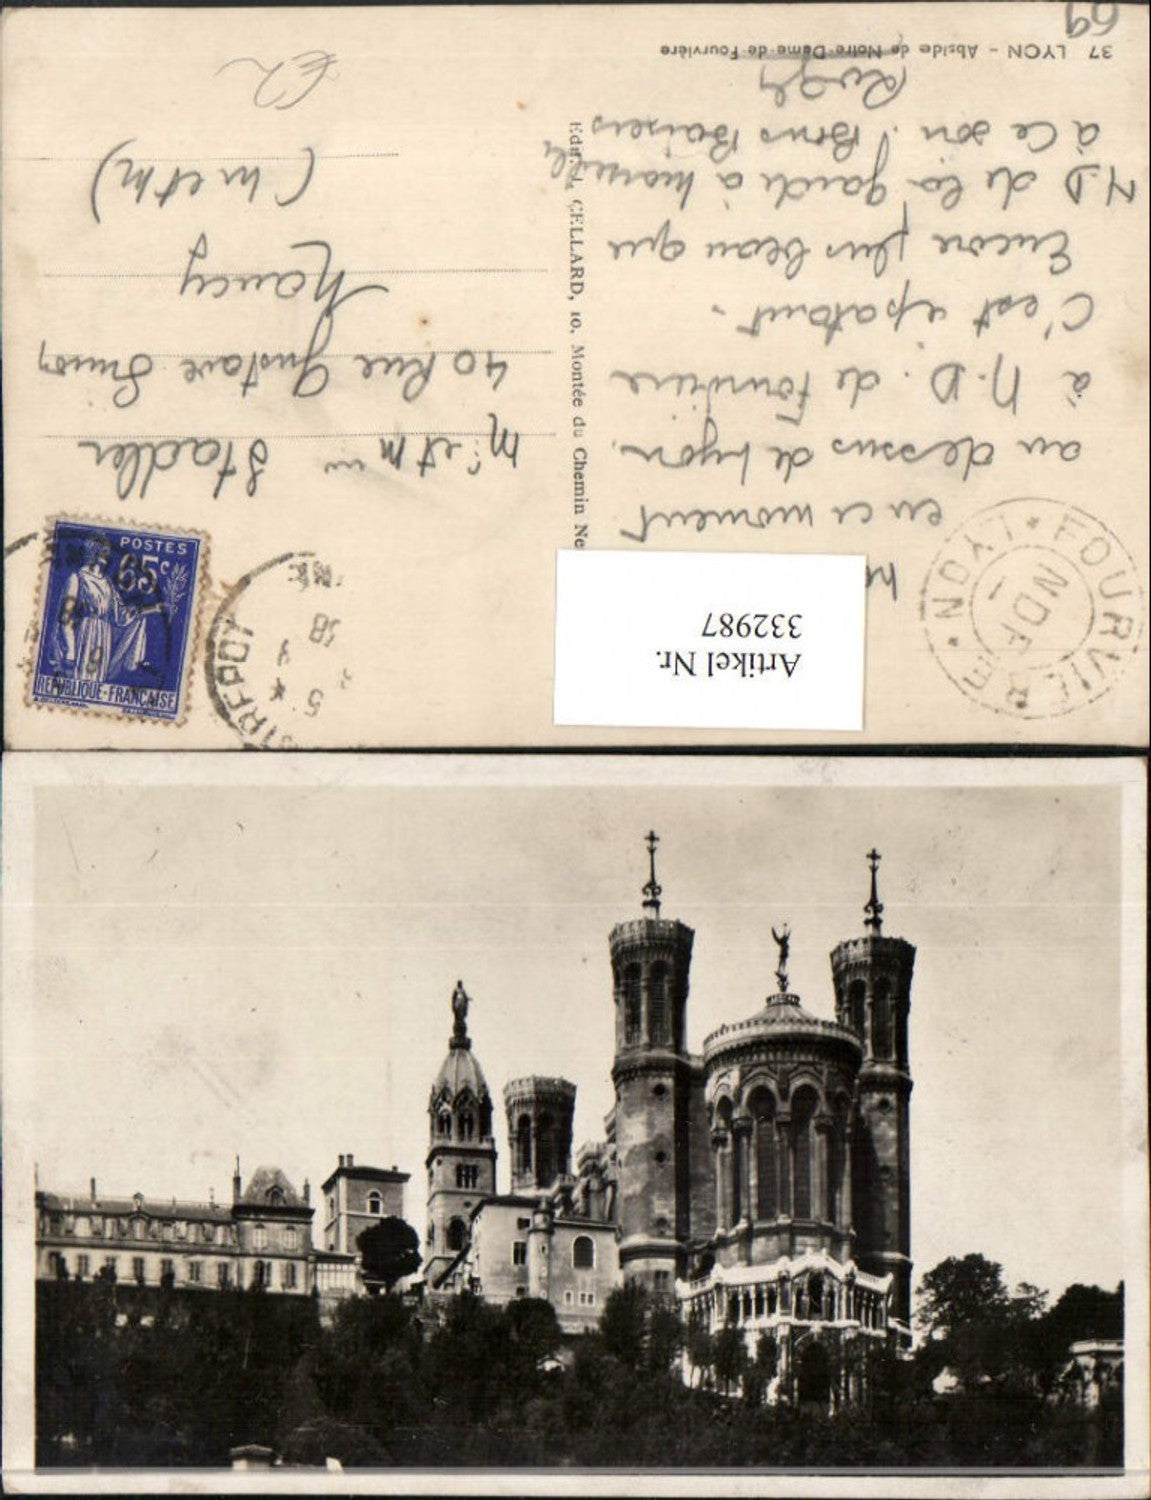 37 LYON - Abside de Notre-Dame-de-Fourvière
69
en ce moment
au dessus de Lyon.
à N.D. de Fourvière
C'est epatant.
Encore plus beau que
N.D de la garde à Marseille
à ce soir. Bons Baisers
€2
Mr et Mme Stadler
40 Rue Gustave Simon
Nancy
(M et M)
Edit. J. CELLARD, 10, Montée du Chemin Ne
Artikel Nr.
332987
POSTES
65c
REPUBLIQUE-FRANÇAISE
LYON * FOURVIERE *
NDF